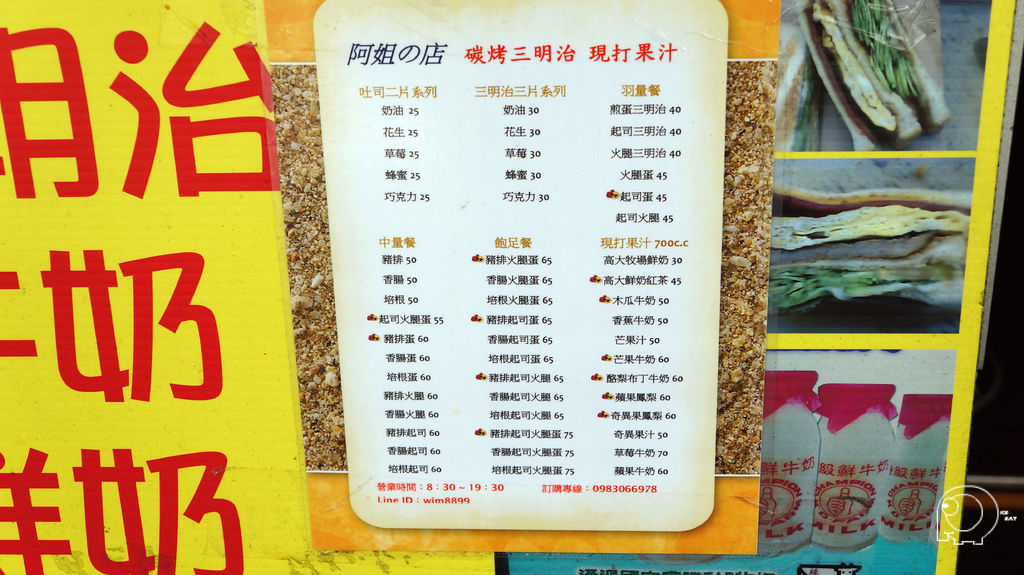 明治
牛奶
鮮奶
阿姐の店 碳烤三明治 現打果汁
吐司二片系列
奶油 25
花生 25
草莓 25
蜂蜜 25
巧克力 25
三明治三片系列
奶油 30
花生 30
草莓 30
蜂蜜 30
巧克力 30
羽量餐
煎蛋三明治 40
起司三明治 40
火腿三明治 40
火腿蛋 45
起司蛋 45
起司火腿 45
中量餐
豬排 50
香腸 50
培根 50
起司火腿蛋 55
豬排蛋 60
香腸蛋 60
培根蛋 60
豬排火腿 60
香腸火腿 60
豬排起司 60
香腸起司 60
培根起司 60
飽足餐
豬排火腿蛋 65
香腸火腿蛋 65
培根火腿蛋 65
豬排起司蛋 65
香腸起司蛋 65
培根起司蛋 65
豬排起司火腿 65
香腸起司火腿 65
培根起司火腿 65
豬排起司火腿蛋 75
香腸起司火腿蛋 75
培根起司火腿蛋 75
現打果汁 700c.c
高大牧場鮮奶 30
高大鮮奶紅茶 45
木瓜牛奶 50
香蕉牛奶 50
芒果汁 50
芒果牛奶 60
酪梨布丁牛奶 60
蘋果鳳梨 60
奇異果鳳梨 60
奇異果汁 50
草莓牛奶 70
蘋果牛奶 60
營業時間：8：30～19：30 訂購專線：0983066978
Line ID：wim8899
級鮮牛奶
CHAMPION
MILK
ICE
EAT